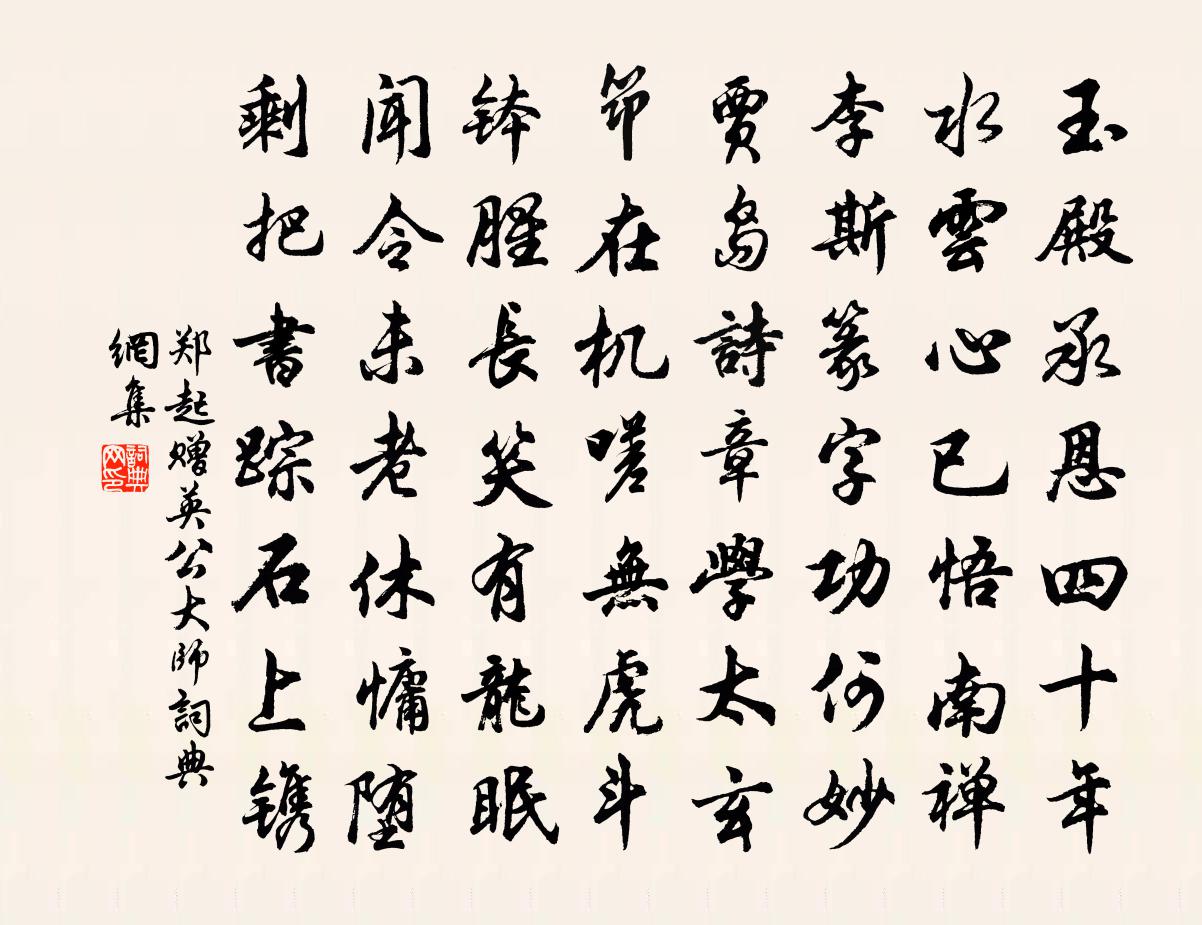 玉殿承恩四十年
水雲心已悟南禅
李斯篆字功何妙
贾島詩章學太玄
筇在机嗟無虎斗
钵腥長笑有龍眠
闻令未老休慵堕
剩把書踪石上镌
郑起赠英公大師詞典
網集
詞典
网印